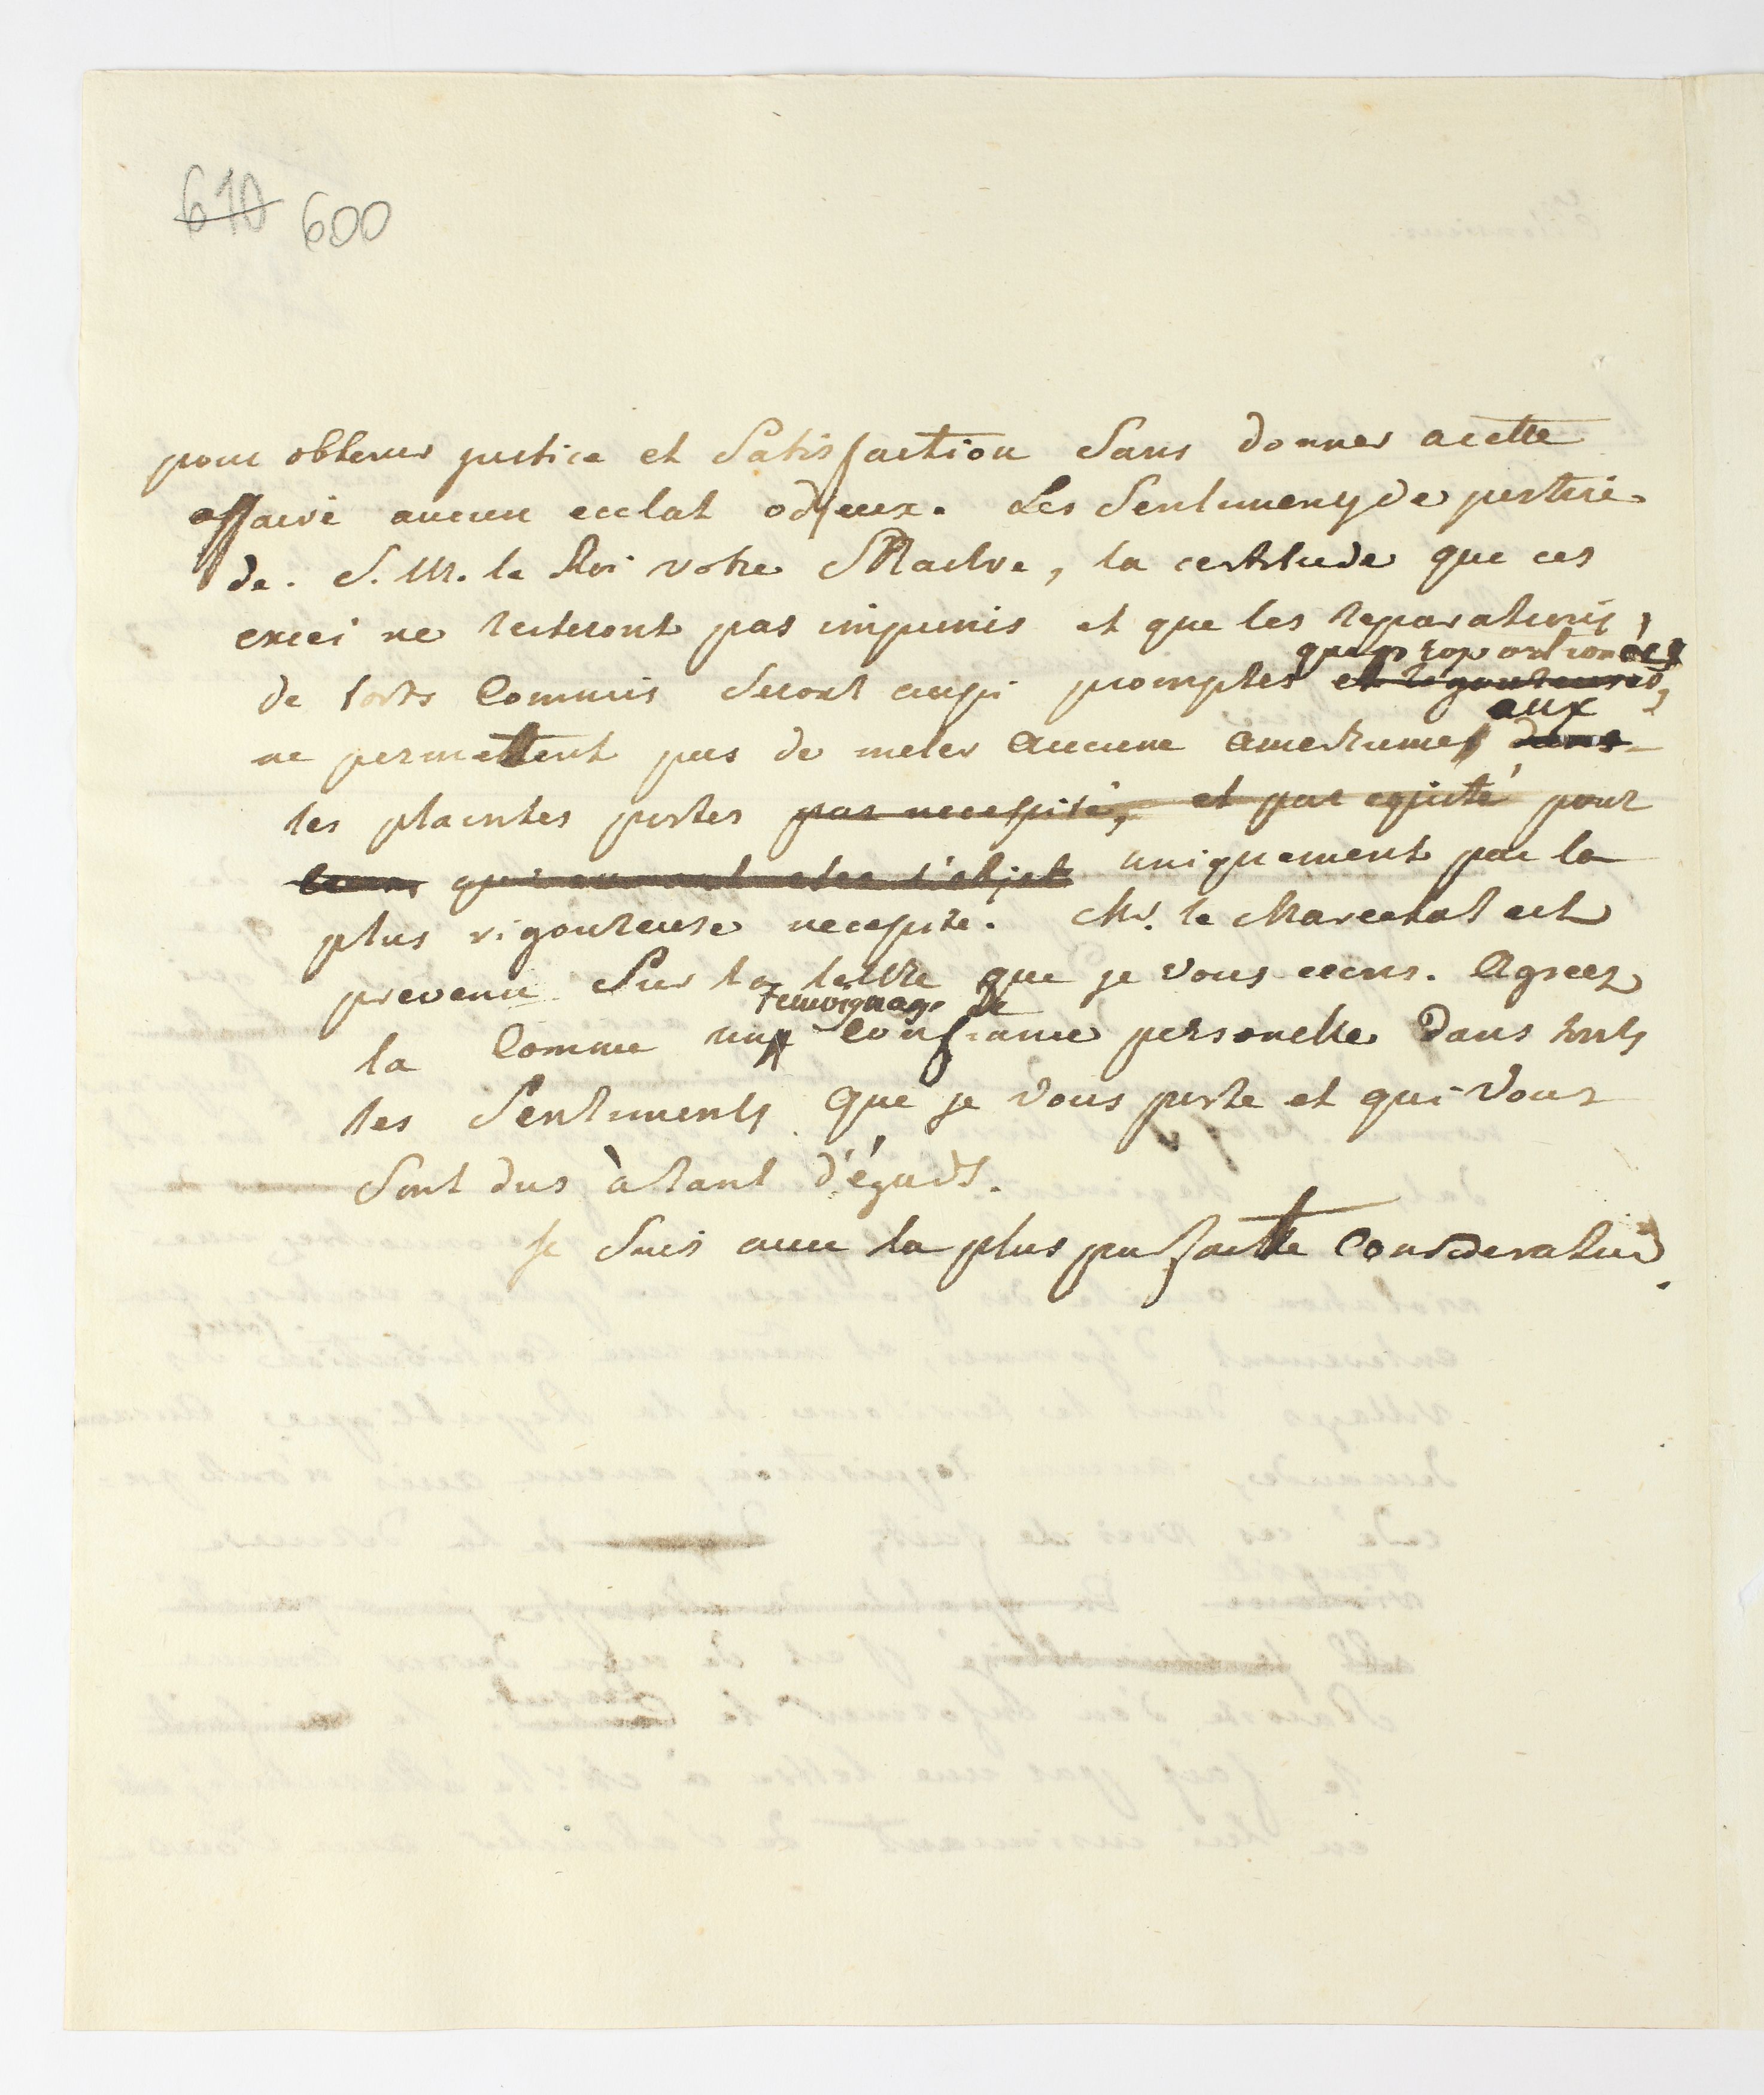 610 600
pour obtenir justice et Satisfaction Sans donner acette
affaire aucun ecclat odjeux. Les Sentimens de justice
de. S. M. le Roi votre Maitre, la certitude que ces
exces ne resteront pas impunis et que les reparations,
que proportionées
de torts Commis Seront aussi promptes et rigoureuses,
aux
ne permettent pas de meler Aucune Amertume dans
les plaintes portes par necessité, et par equité pour
qui en ont etes l'objet uniquement par la
plus rigoureuse necessite. Mr. le Marechal est
prevenu Sur la lettre que je vous ecris. Agreez
temoignage de
la Comme un Confiance personelle Dans touts
les Sentiments que je Vous porte et qui Vous
Sont dus à tant d'égards.
Je Suis avec la plus parfaitte Consideration.